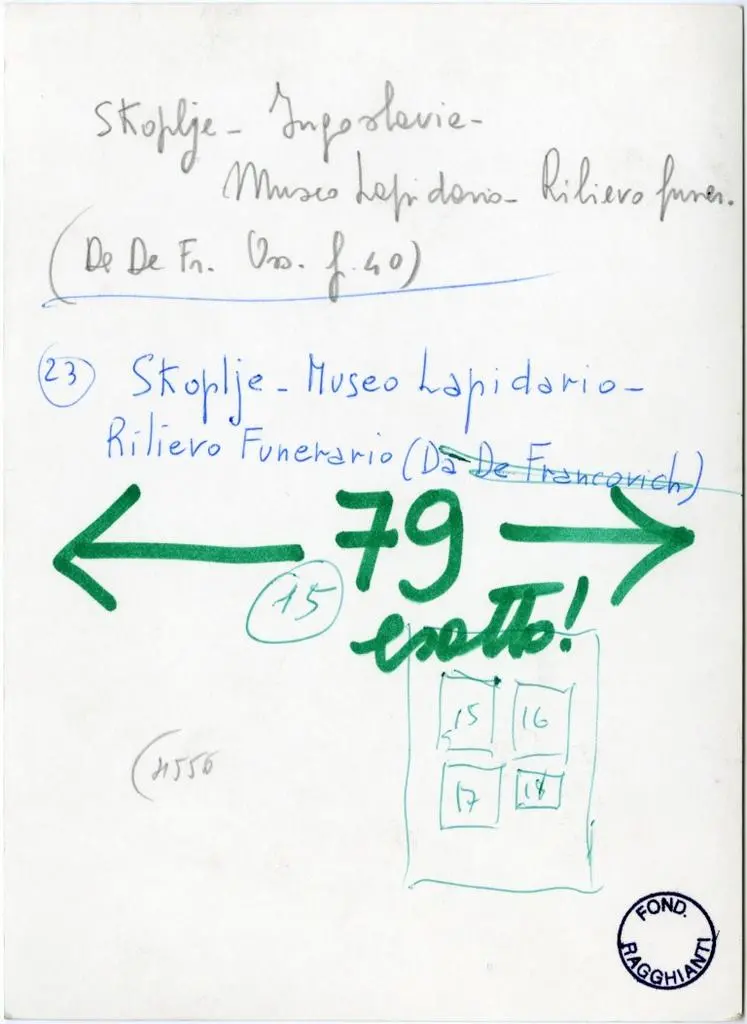 Skoplje - Jugoslavia -
Museo Lapidario - Rilievo funer.
(Da De Fr. Oss. f. 40)
23 Skoplje - Museo Lapidario -
Rilievo Funerario (Da De Francovich)
79
15 esatto!
15 16
17 18
(4556
FOND.
RAGGHIANTI